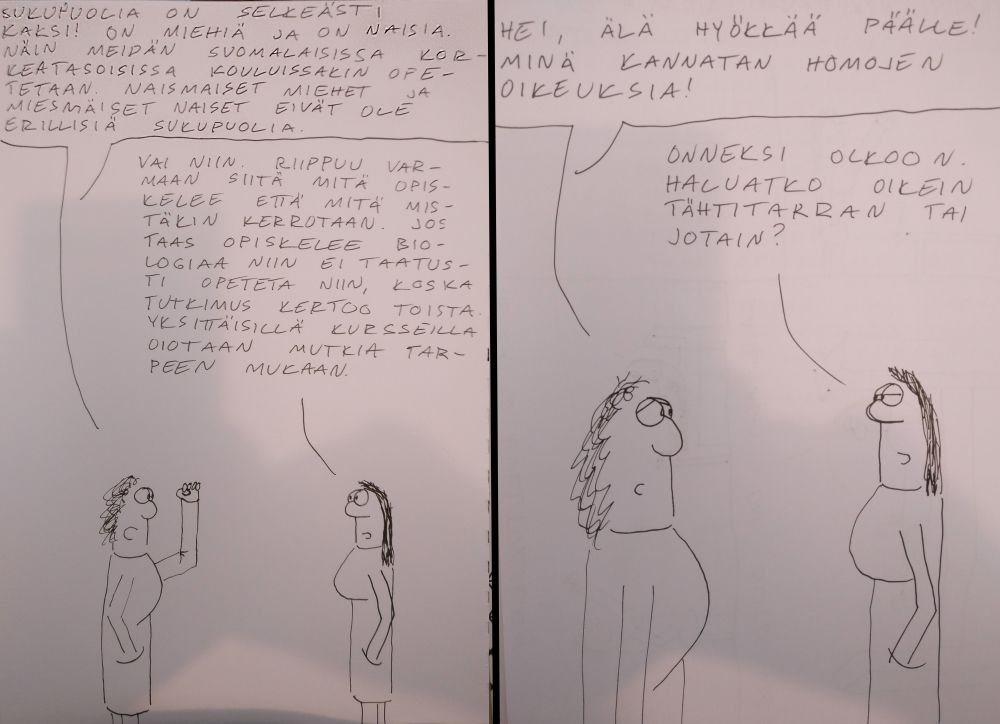 SUKUPUOLIA ON SELKEÄSTI
KAKSI! ON MIEHIÄ JA ON NAISIA.
NÄIN MEIDÄN SUOMALAISISSA KOR-
KEATASOISISSA KOULUISSAKIN OPE-
TETAAN. NAISMAISET MIEHET JA
MIESMÄISET NAISET EIVÄT OLE
ERILLISIÄ SUKUPUOLIA.
VAI NIIN. RIIPPUU VAR-
MAAN SIITÄ MITÄ OPIS-
KELEE ETTÄ MITÄ MIS-
TÄKIN KERROTAAN. JOS
TAAS OPISKELEE BIO-
LOGIAA NIIN EI TAATUS-
TI OPETETA NIIN, KOSKA
TUTKIMUS KERTOO TOISTA.
YKSITTÄISILLÄ KURSSEILLA
OIOTAAN MUTKIA TAR-
PEEN MUKAAN.
HEI, ÄLÄ HYÖKKÄÄ PÄÄLLE!
MINÄ KANNATAN HOMOJEN
OIKEUKSIA!
ONNEKSI OLKOON.
HALUATKO OIKEIN
TÄHTITARRAN TAI
JOTAIN?